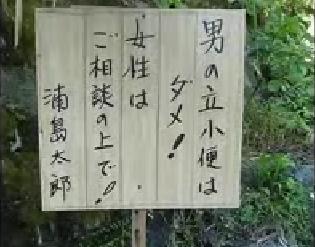 男の立小便は
ダメ！
女性は
ご相談の上で！
浦島太郎